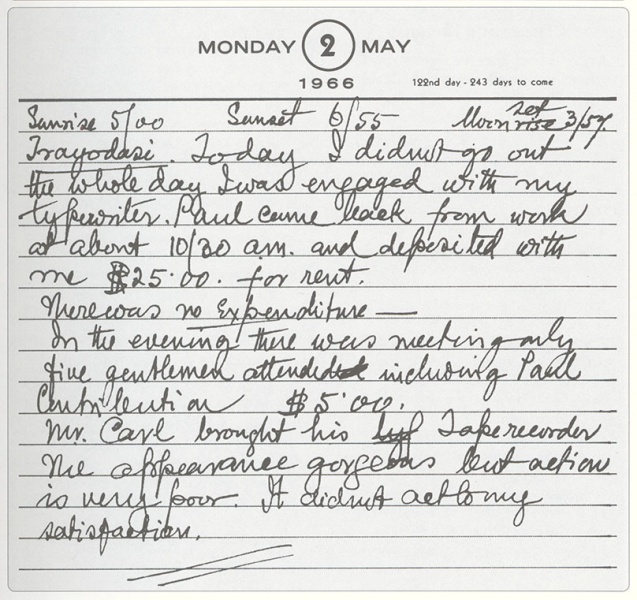 MONDAY 2 MAY
1966 122nd day - 243 days to come
Sunrise 5/00 Sunset 6/55 Moon rise set 3/57.
Trayodasi. Today I didnot go out
the whole day I was engaged with my
typewriter. Paul came back from work
at about 10/30 a.m. and deposited with
me $25.00. for rent.
There was no Expenditure —
In the evening there was meeting only
five gentlemen attended including Paul
Contribution $5.00.
Mr. Carl brought his Taperecorder
The appearance gorgeous but action
is very poor. It didnot act to my
satisfaction.